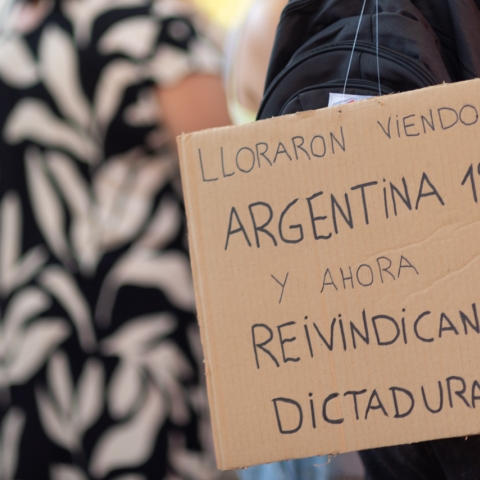 LLORARON VIENDO
ARGENTINA 1
Y AHORA
REIVINDICAN
DICTADURA